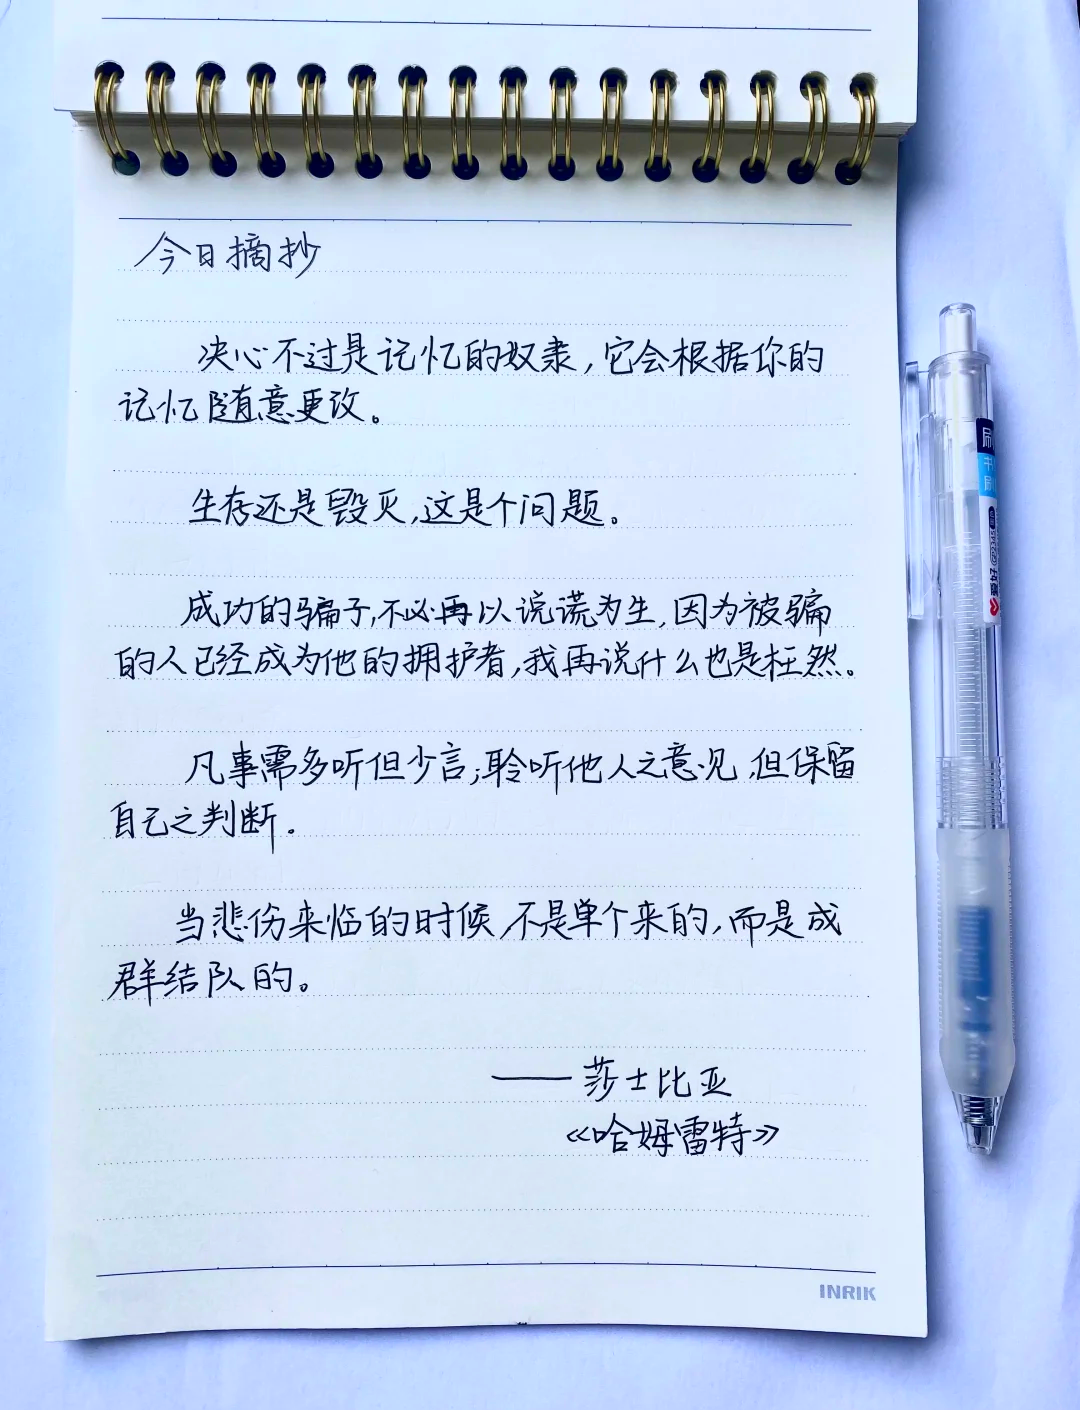 今日摘抄
决心不过是记忆的奴隶,它会根据你的
记忆随意更改。
生存还是毁灭,这是个问题。
成功的骗子,不必再以说谎为生,因为被骗
的人已经成为他的拥护者,我再说什么也是枉然。
凡事需多听但少言;聆听他人之意见,但保留
自己之判断。
当悲伤来临的时候,不是单个来的,而是成
群结队的。
——莎士比亚
《哈姆雷特》
INRIK